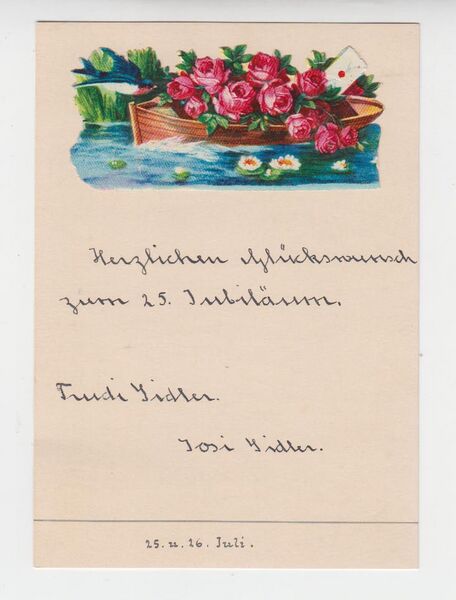 Herzlichen Glückwunsch
zum 25. Jubiläum.
Trudi Sidler.
Josi Sidler.
25. u. 26. Juli.